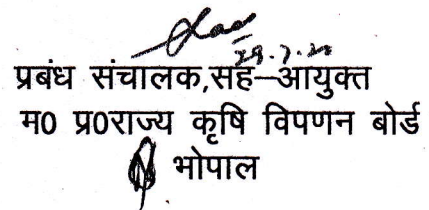 29.7.20
प्रबंध संचालक,सह–आयुक्त
म0 प्र0राज्य कृषि विपणन बोर्ड
भोपाल